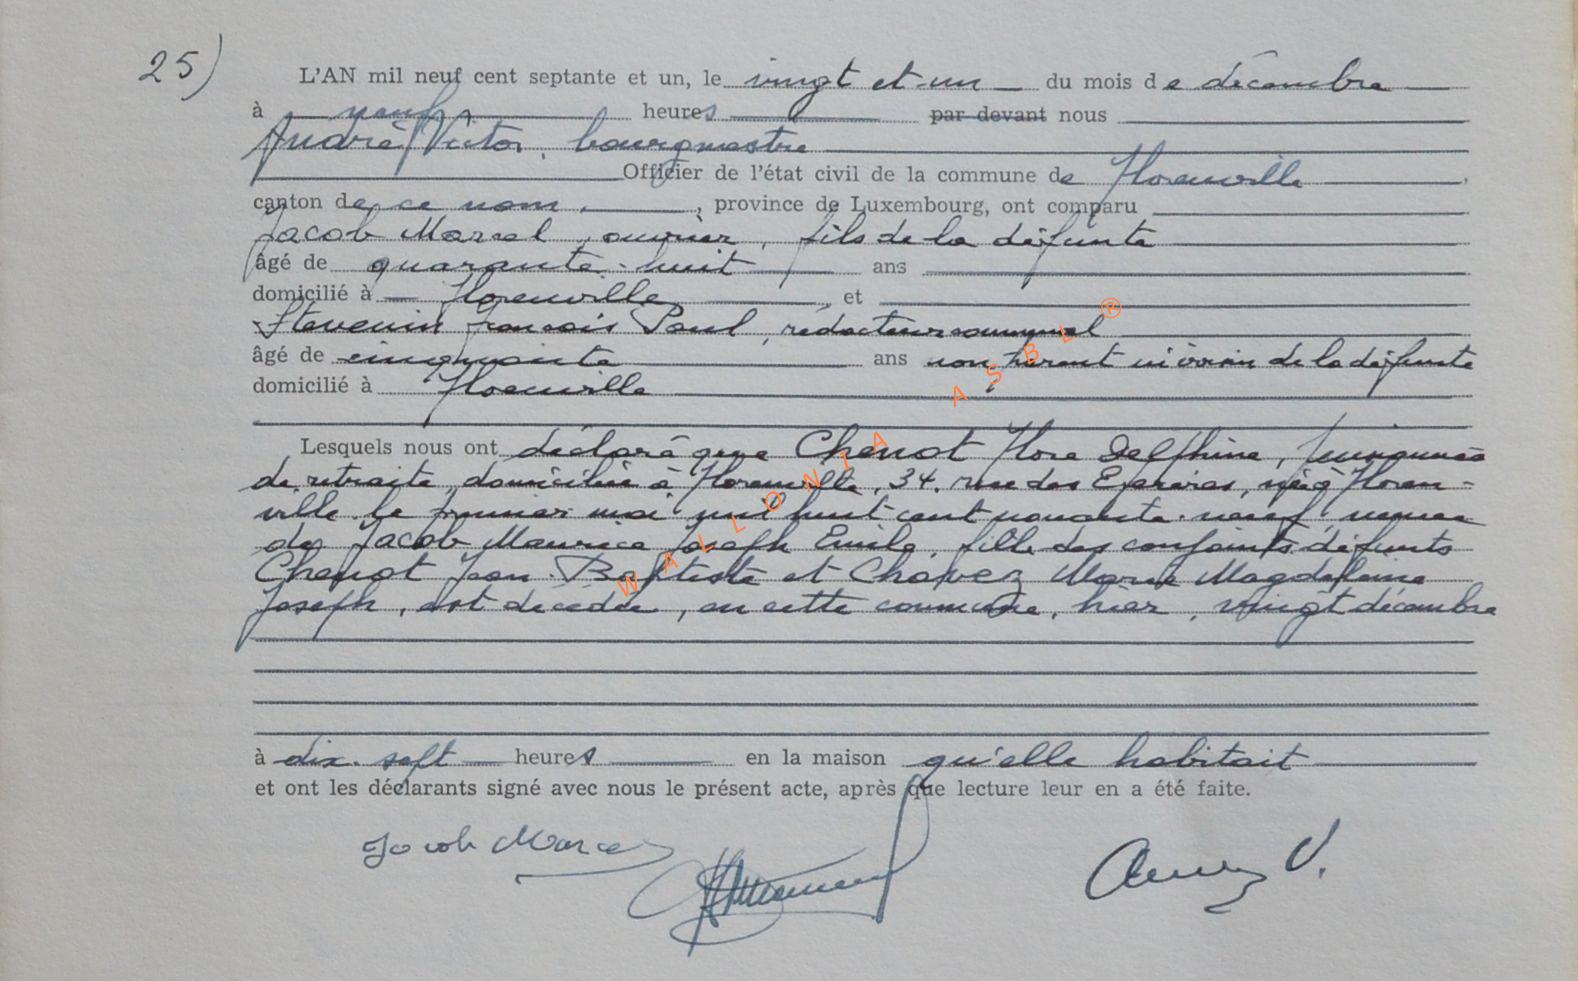 25)
L'AN mil neuf cent septante et un, le vingt et un du mois de décembre
à neuf heures par devant nous
André Victor, bourgmestre
Officier de l'état civil de la commune de Florenville
canton de ce nom, province de Luxembourg, ont comparu
Jacob Marcel, ouvrier, fils de la défunte
âgé de quarante-huit ans
domicilié à Florenville, et
Stevenin François Paul, rédacteur communal
âgé de cinquante ans non parent ni voisin de la défunte
domicilié à Florenville
Lesquels nous ont déclaré que Chenot Flore Delphine, pensionnée
de retraite, domiciliée à Florenville, 34, rue des Epinières, née à Floren-
ville le premier mai mil huit cent nonante-neuf, veuve
de Jacob Maurice Joseph Emile, fille des conjoints défunts
Chenot Jean-Baptiste et Chavez Marie Magdeleine
Joseph, est décédée, en cette commune, hier, vingt décembre
à dix-sept heures en la maison qu'elle habitait
et ont les déclarants signé avec nous le présent acte, après que lecture leur en a été faite.
Jacob Marcel
WALLONIA ASBL ®